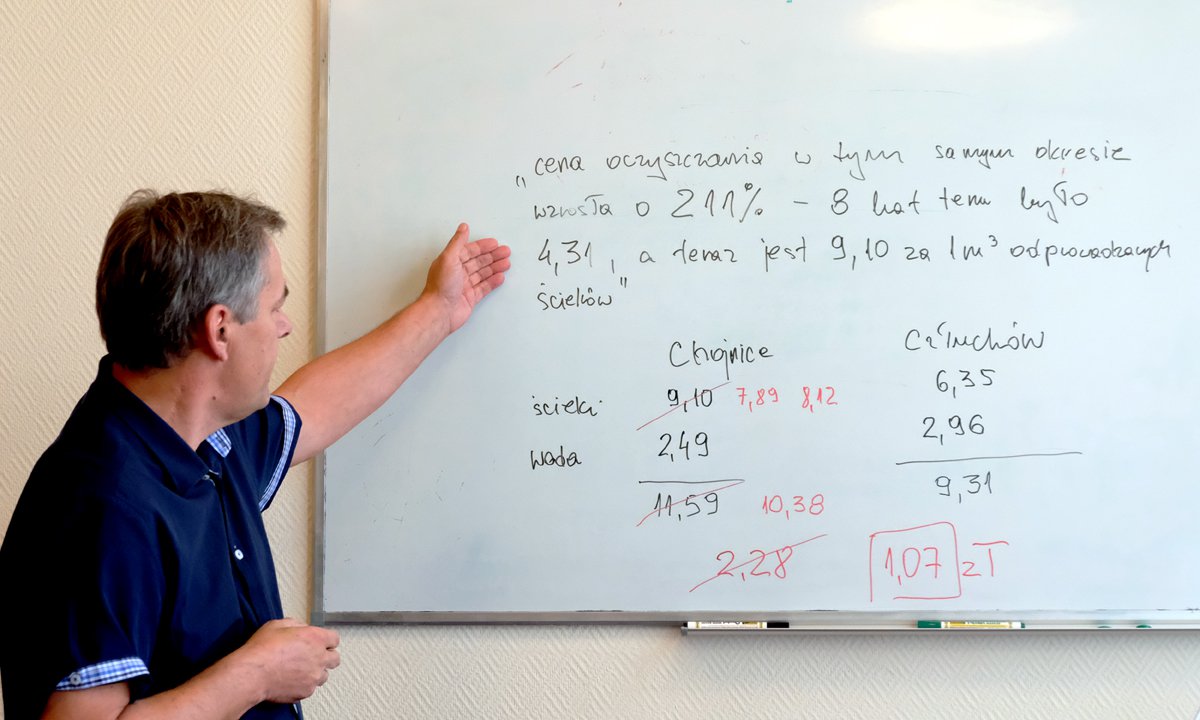 „cena oczyszczania w tym samym okresie
wzrosła o 211% – 8 lat temu było
4,31, a teraz jest 9,10 za 1m³ odprowadzanych
ścieków"
Chojnice Człuchów
ścieki 9,10 7,89 8,12 6,35
woda 2,49 2,96
11,59 10,38 9,31
2,28 1,07 zł